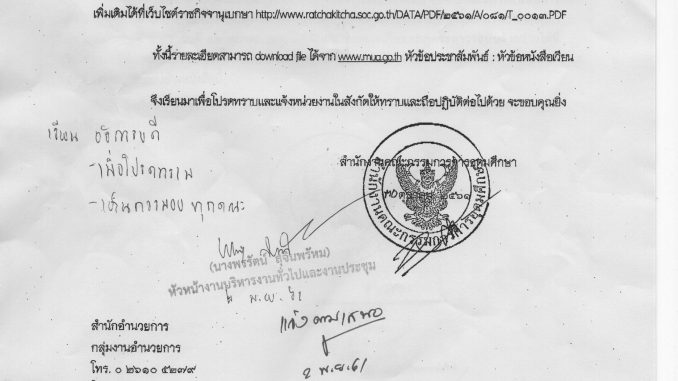 เพิ่มเติมได้ที่เว็บไซต์ราชกิจจานุเบกษา http://www.ratchakitcha.soc.go.th/DATA/PDF/๒๕๖๑/A/๐๘๑/T_๐๐๑๓.PDF
ทั้งนี้รายละเอียดสามารถ download file ได้จาก www.mua.go.th หัวข้อประชาสัมพันธ์ : หัวข้อหนังสือเวียน
จึงเรียนมาเพื่อโปรดทราบและแจ้งหน่วยงานในสังกัดให้ทราบและถือปฏิบัติต่อไปด้วย จะขอบคุณยิ่ง
เรียน อธิการบดี
-เพื่อโปรดทราบ
-เห็นควรมอบ ทุกคณะ
สำนักงานคณะกรรมการการอุดมศึกษา
๓๐ ตุลาคม ๒๕๖๑
สำนักงานคณะกรรมการการอุดมศึกษา
(นางพรรัตน์ สุจินพรัหม)
หัวหน้างานบริหารงานทั่วไปและงานประชุม
พ.ย. ๖๑
แจ้งตามเสนอ
๒ พ.ย. ๖๑
สำนักอำนวยการ
กลุ่มงานอำนวยการ
โทร. ๐ ๒๖๑๐ ๕๒๗๙